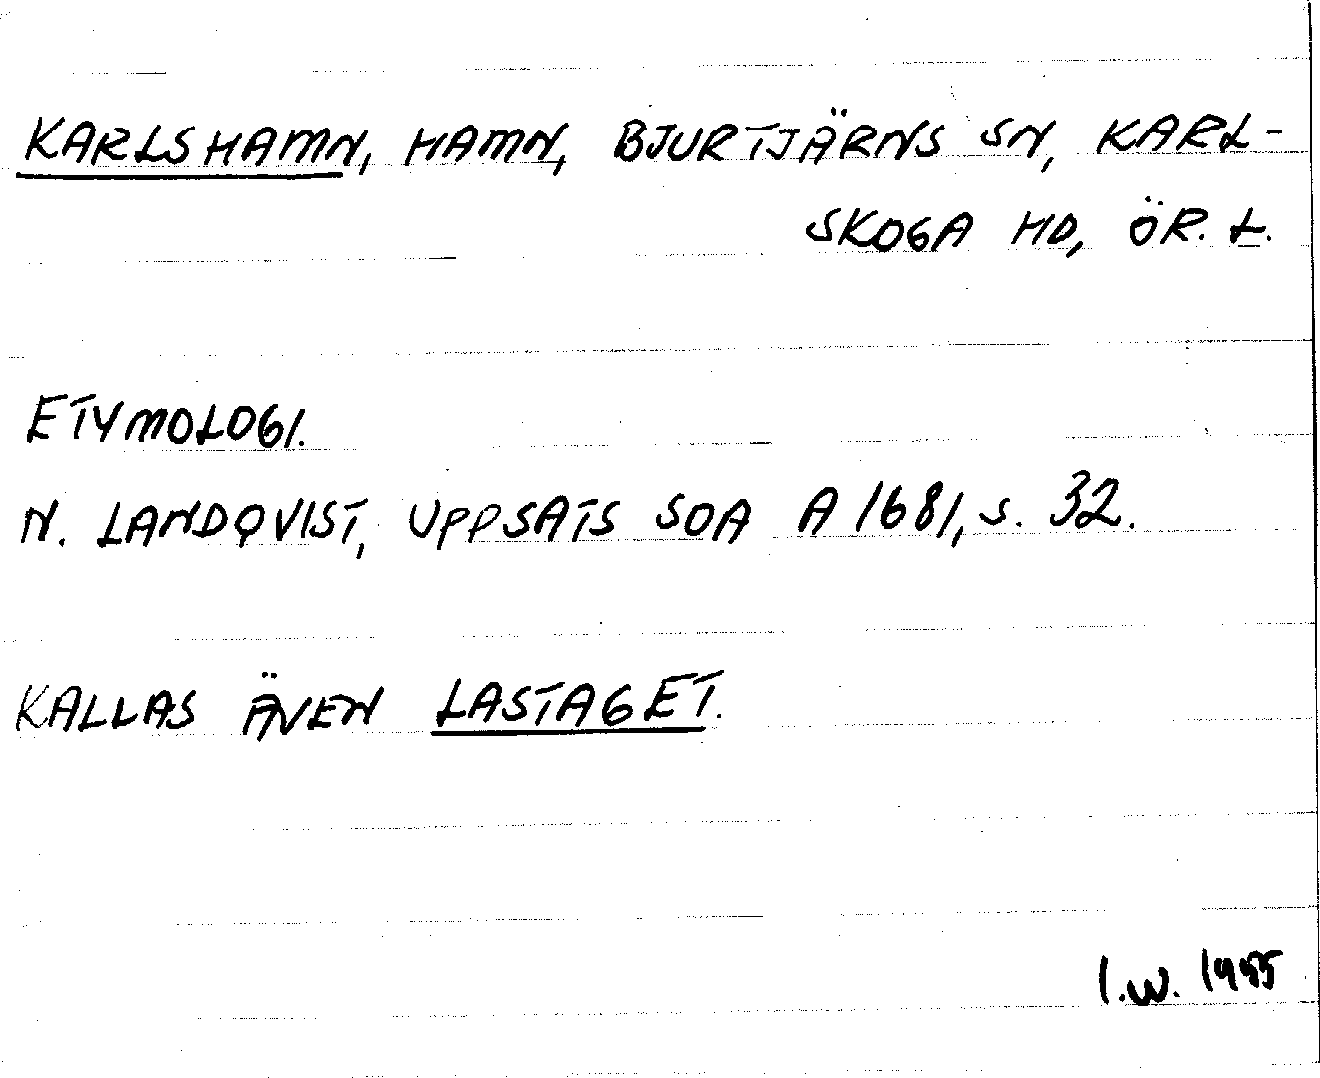 KARLSHAMN, HAMN, BJURTJÄRNS SN, KARL-
SKOGA HD, ÖR. L.
ETYMOLOGI.
N. LANDQVIST, UPPSATS SOA A 1681, S. 32.
KALLAS ÄVEN LASTAGET.
I.W. 1955